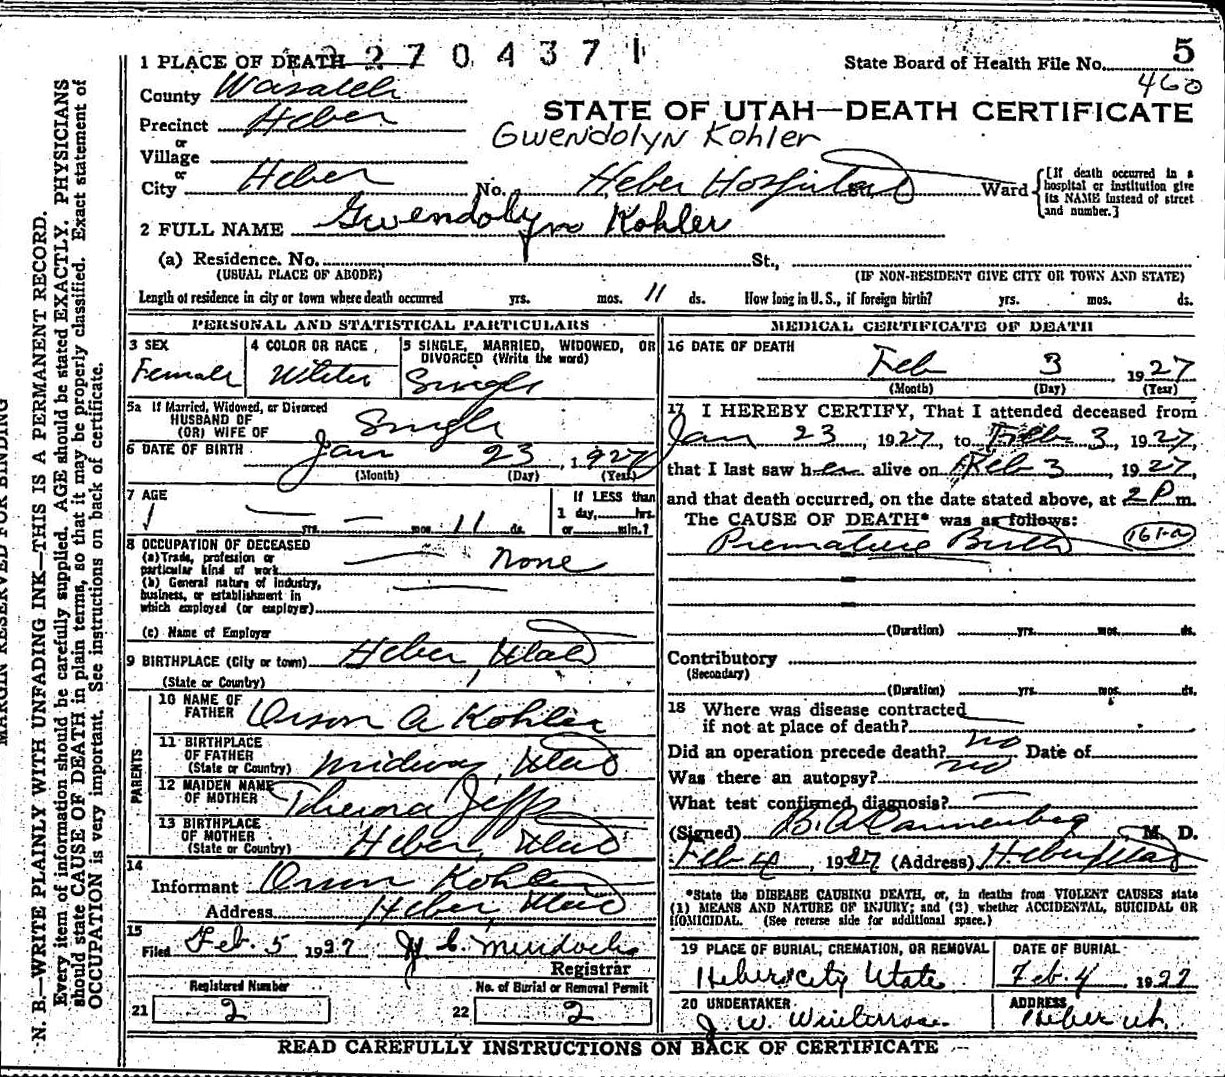 2 2 7 0 4 3 7 1
5
1 PLACE OF DEATH
State Board of Health File No.
460
County Wasatch
STATE OF UTAH—DEATH CERTIFICATE
Precinct Heber
Gwendolyn Kohler
or
Village
or
City Heber No. Heber Hospital St., Ward
[If death occurred in a
hospital or institution give
its NAME instead of street
and number.]
2 FULL NAME Gwendolyn Kohler
(a) Residence. No. St.,
(USUAL PLACE OF ABODE) (IF NON-RESIDENT GIVE CITY OR TOWN AND STATE)
Length of residence in city or town where death occurred yrs. mos. 11 ds. How long in U. S., if foreign birth? yrs. mos. ds.
PERSONAL AND STATISTICAL PARTICULARS
3 SEX
Female
4 COLOR OR RACE
White
5 SINGLE, MARRIED, WIDOWED, OR
DIVORCED (Write the word)
Single
5a If Married, Widowed, or Divorced
HUSBAND OF
(OR) WIFE OF Single
6 DATE OF BIRTH Jan 23, 1927
(Month) (Day) (Year)
7 AGE
— yrs. — mos. 11 ds.
If LESS than
1 day, hrs.
or min.?
8 OCCUPATION OF DECEASED
(a) Trade, profession or
particular kind of work None
(b) General nature of industry,
business, or establishment in
which employed (or employer)
(c) Name of Employer
9 BIRTHPLACE (City or town) Heber, Utah
(State or Country)
PARENTS
10 NAME OF
FATHER Orson A Kohler
11 BIRTHPLACE
OF FATHER
(State or Country) Midway, Utah
12 MAIDEN NAME
OF MOTHER Thenora Jeffs
13 BIRTHPLACE
OF MOTHER
(State or Country) Heber, Utah
14
Informant Orson Kohler
Address Heber, Utah
15
Filed Feb. 5 1927 Registrar
Registered Number
21 2
No. of Burial or Removal Permit
22 2
MEDICAL CERTIFICATE OF DEATH
16 DATE OF DEATH
Feb 3 1927
(Month) (Day) (Year)
17 I HEREBY CERTIFY, That I attended deceased from
Jan 23, 1927, to Feb 3, 1927,
that I last saw her alive on Feb 3 1927,
and that death occurred, on the date stated above, at 2 P m.
The CAUSE OF DEATH* was as follows:
Premature Birth 161-a
(Duration) yrs. mos. ds.
Contributory
(Secondary)
(Duration) yrs. mos. ds.
18 Where was disease contracted
if not at place of death?
Did an operation precede death? no Date of
Was there an autopsy? no
What test confirmed diagnosis?
(Signed) M. D.
Feb 4, 1927 (Address) Heber, Utah
*State the DISEASE CAUSING DEATH, or, in deaths from VIOLENT CAUSES state
(1) MEANS AND NATURE OF INJURY; and (2) whether ACCIDENTAL, SUICIDAL OR
HOMICIDAL. (See reverse side for additional space.)
19 PLACE OF BURIAL, CREMATION, OR REMOVAL
Heber City Utah
DATE OF BURIAL
Feb. 4 1927
20 UNDERTAKER
J. W. Winterrose
ADDRESS
Heber Ut.
READ CAREFULLY INSTRUCTIONS ON BACK OF CERTIFICATE
MARGIN RESERVED FOR BINDING
N. B.—WRITE PLAINLY WITH UNFADING INK—THIS IS A PERMANENT RECORD.
Every item of information should be carefully supplied. AGE should be stated EXACTLY. PHYSICIANS
should state CAUSE OF DEATH in plain terms, so that it may be properly classified. Exact statement of
OCCUPATION is very important. See instructions on back of certificate.